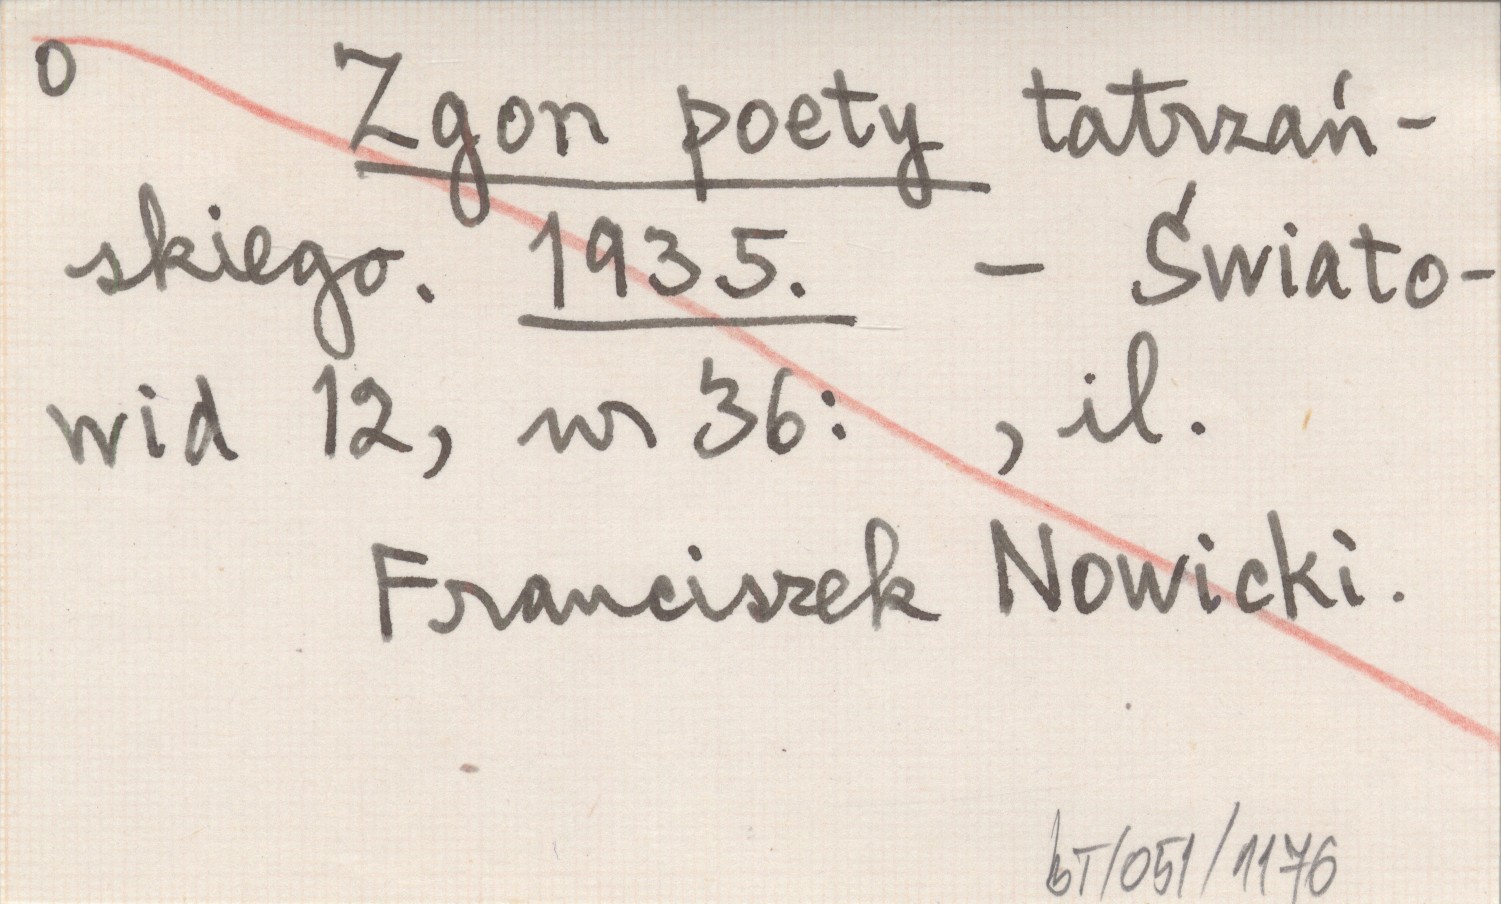 o Zgon poety tatrzań-
skiego. 1935. – Świato-
wid 12, nr 36: , il.
Franciszek Nowicki.
bT/051/1176